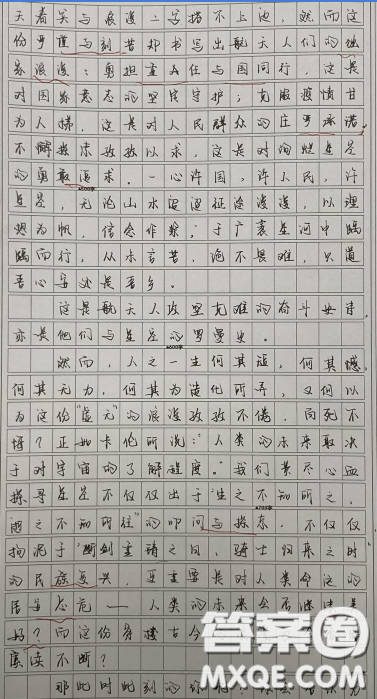 天看笑与浪漫二字搭不上边，然而这
份严谨与刻苦却书写出航天人们的独
家浪漫：勇担重任与国同行，这是
对国家意志的坚定守护；克服疲愤甘
为人梯，这是对人民群众的庄严承诺
不懈探求孜孜以求，这是对绚烂星空
的勇敢追求。一心许国，许人民，许
星辰，无论山水迢迢征途漫漫，以理
想为帆，信念作桨，于广袤星河中踽
踽而行，从未言苦，绝不畏难，只道
吾心安处是吾乡。
这是航天人攻坚克难的奋斗史诗，
亦是他们与星辰的罗曼史。
600字
然而，人之一生何其短，何其憾，
何其无力，何其为造化所弄，又何以
为这份“虚无”的浪漫孜孜不倦，向死不
悔？正如卡伦所说：“人类的未来取决
于对宇宙的了解程度。”我们费尽心血
探寻星辰不仅仅出于“生之不知所之，
逝之不知所往”的叩问与探索，不仅仅
700字
拘泥于“断剑重铸之日，骑士归来之时”
的民族复兴，更重要是对人类命运的
居安思危——人类的未来会否继续美
好？而这份穿越古今
赓续不断？
那此时此刻的你
答案圈
MXQE.COM